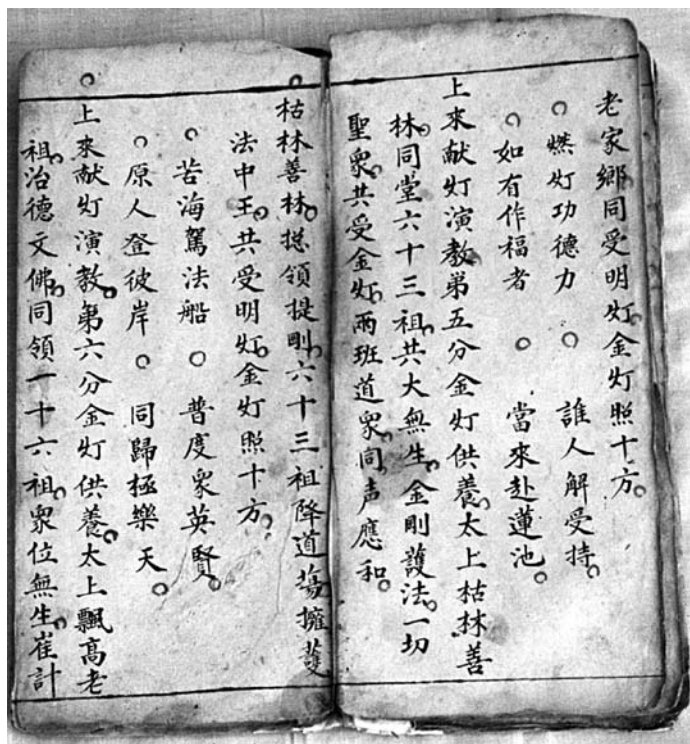 老家鄉同受明灯。金灯照十方。
○燃灯功德力○誰人解受持。
○如有作福者○當來赴蓮池。
上來献灯演教第五分金灯供養。太上枯林善
林。同堂六十三祖。共大無生。金剛護法。一切
聖衆。共受金灯。兩班道衆。同声應和。
○枯林善林。搃領提剛。六十三祖降道蕩擁護
法中王。共受明灯。金灯照十方。
○苦海駕法船○普度衆英賢。
○原人登彼岸○同歸極樂天。
○上來献灯演教。第六分金灯供養。太上飄高老
祖。治德文佛。同領一十六祖。衆位無生。崔計